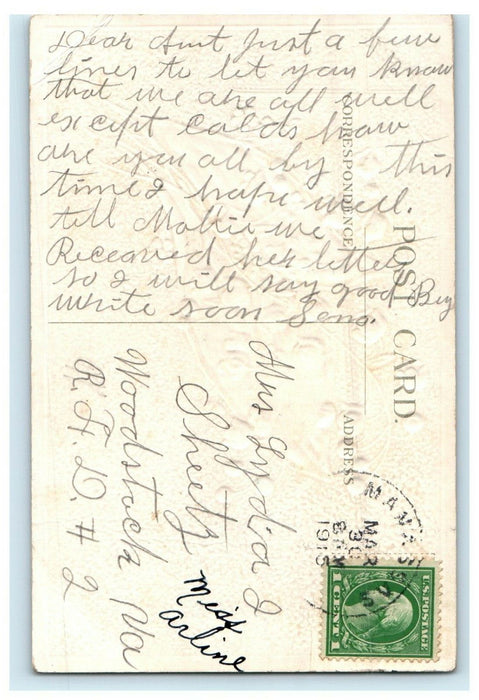 Dear Aunt Just a few
lines to let you know
that we are all well
except colds how
are you all by this
time I hope well.
tell Mottie we
Received her letter
so I will say good Bey
write soon
POST CARD.
CORRESPONDENCE
ADDRESS
Mrs Lydia I
Sheetz
Woodstock Va
R.F.D. # 2
Miss
Arline
MANAS
MAR
30
8 PM
1915
U.S. POSTAGE
1 CENT 1